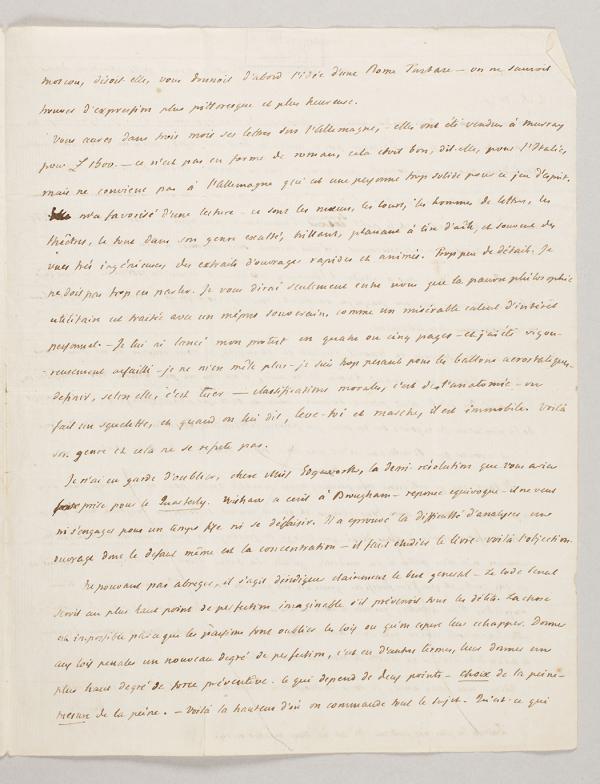 moscou, disoit elle, vous donnoit d'abord l'idée d'une Rome Tartare – on ne sauroit
trouver d'expression plus pittoresque et plus heureuse.
Vous aurez dans trois mois ses lettres sur l'Allemagne, – elles ont été vendues à murray
pour £ 1500. – ce n'est pas en forme de roman, cela étoit bon, dit-elle, pour l'Italie,
mais ne convient pas à l'Allemagne qui est une personne trop solide pour ce jeu d'esprit.
m'a favorisé d'une lecture – ce sont les mœurs, les cours, les hommes de lettres, les
théâtres, le tout dans son genre exalté, brillant, planant à tire d'aîle, et souvent des
vues très ingénieuses, des extraits d'ouvrages rapides et animés. Trop peu de détail. Je
ne dois pas trop en parler. Je vous dirai seulement entre nous que la pauvre philosophie
utilitaire est traitée avec un mépris souverain, comme un misérable calcul d'intérêt
personnel. – Je lui ai lancé mon protest en quatre ou cinq pages – et j'ai été vigou-
reusement assailli – je ne m'en mêle plus – je suis trop pesant pour les ballons aerostatiques.
definir, selon elle, c'est tuer – classifications morales, c'est de l'anatomie – on
fait un squelette, et quand on lui dit, leve-toi et marche, il est immobile. Voilà
son genre et cela ne se refute pas.
Je n'ai eu garde d'oublier, chere Miss Edgeworth, la demi résolution que vous aviez
prise pour le Quarterly. Wishaw a écrit à Brougham – reponse equivoque – il ne veut
ni s'engager pour un temps fixe ni se déssaisir. Il a eprouvé la difficulté d'analyser un
ouvrage dont le defaut même est la concentration – il faut etudier le livre voilà l'objection.
Ne pouvant pas abreger, il s'agit d'indiquer clairement le but general – Le code penal
seroit au plus haut point de perfection imaginable s'il prévenoit tous les délits. La chose
est impossible parce que les passions font oublier les lois ou qu'on espere leur echapper. Donner
aux lois penales un nouveau degré de perfection, c'est en d'autres termes, leur donner un
plus haut degré de force préventive. ce qui depend de deux points – choix de la peine –
mesure de la peine. – Voilà la hauteur d'où on commande tout le sujet. Qu'est-ce qui